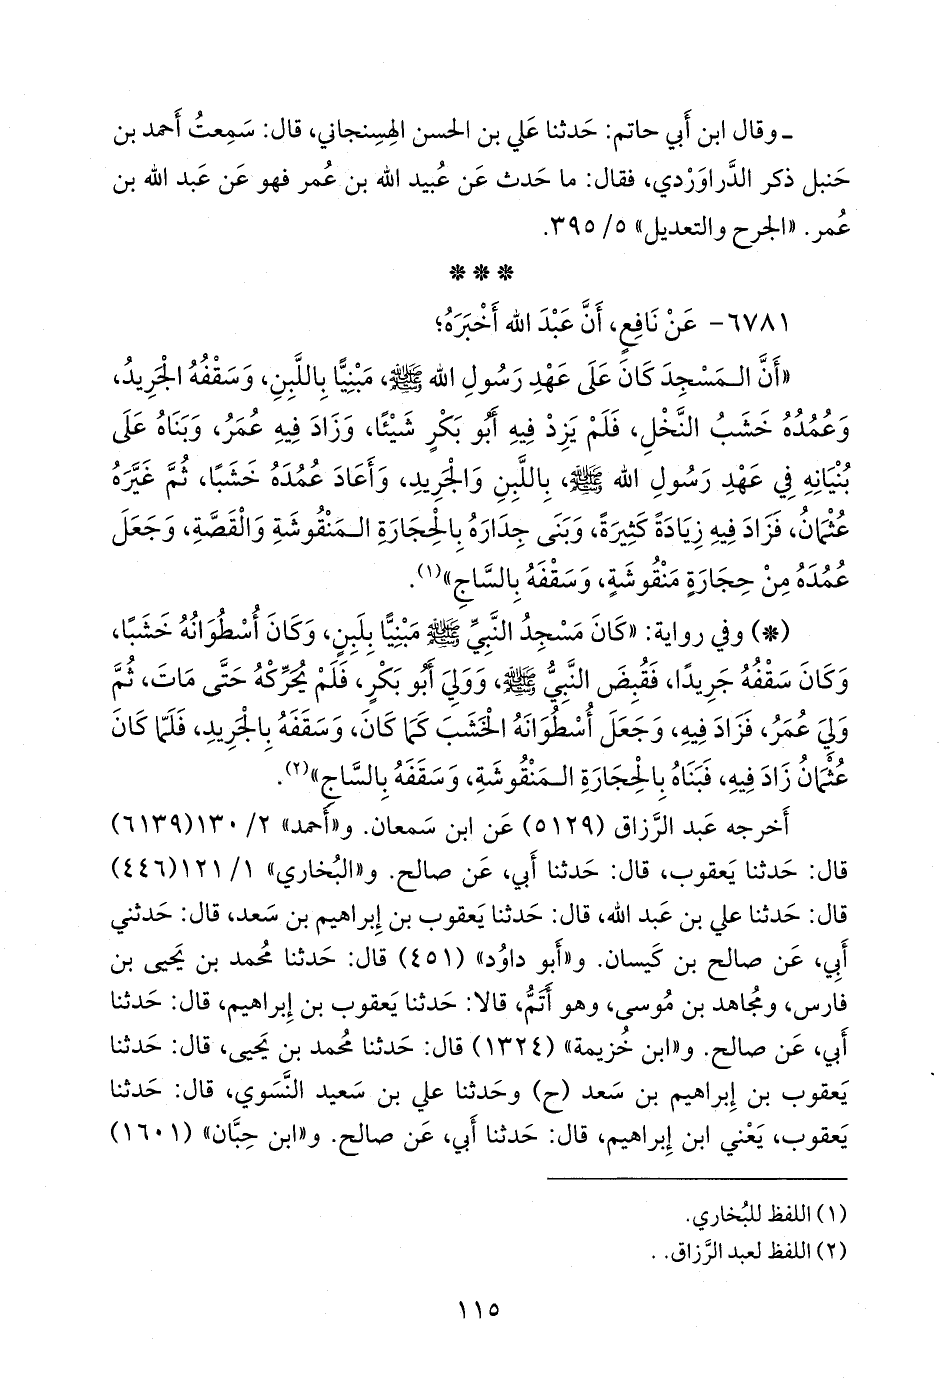 ـ وقال ابن أَبي حاتم: حَدثنا عَلي بن الحسن الهِسِنجاني، قال: سَمِعتُ أَحمد بن
حَنبل ذكر الدَّراوَرْدي، فقال: ما حَدث عَن عُبيد الله بن عُمر فهو عَن عَبد الله بن
عُمر. «الجرح والتعديل» ٥/ ٣٩٥.
***
٦٧٨١- عَنْ نَافِعٍ، أَنَّ عَبْدَ الله أَخْبَرَهُ؛
«أَنَّ الـمَسْجِدَ كَانَ عَلَى عَهْدِ رَسُولِ الله ﷺ، مَبْنِيًّا بِاللَّبِنِ، وَسَقْفُهُ الْجَرِيدُ،
وَعُمُدُهُ خَشَبُ النَّخْلِ، فَلَمْ يَزِدْ فِيهِ أَبُو بَكْرٍ شَيْئًا، وَزَادَ فِيهِ عُمَرُ، وَبَنَاهُ عَلَى
بُنْيَانِهِ فِي عَهْدِ رَسُولِ الله ﷺ، بِاللَّبِنِ وَالْجَرِيدِ، وَأَعَادَ عُمُدَهُ خَشَبًا، ثُمَّ غَيَّرَهُ
عُثْمَانُ، فَزَادَ فِيهِ زِيَادَةً كَثِيرَةً، وَبَنَى جِدَارَهُ بِالْحِجَارَةِ الـمَنْقُوشَةِ وَالْقَصَّةِ، وَجَعَلَ
عُمُدَهُ مِنْ حِجَارَةٍ مَنْقُوشَةٍ، وَسَقْفَهُ بِالسَّاجِ»(١).
(*) وفي رواية: «كَانَ مَسْجِدُ النَّبِيِّ ﷺ مَبْنِيًّا بِلَبِنٍ، وَكَانَ أُسْطُوَانُهُ خَشَبًا،
وَكَانَ سَقْفُهُ جَرِيدًا، فَقُبِضَ النَّبِيُّ ﷺ، وَوَلِيَ أَبُو بَكْرٍ، فَلَمْ يُحَرِّكْهُ حَتَّى مَاتَ، ثُمَّ
وَلِيَ عُمَرُ، فَزَادَ فِيهِ، وَجَعَلَ أُسْطُوَانَهُ الْخَشَبَ كَمَا كَانَ، وَسَقَفَهُ بِالْجَرِيدِ، فَلَمَّا كَانَ
عُثْمَانُ زَادَ فِيهِ، فَبَنَاهُ بِالْحِجَارَةِ الـمَنْقُوشَةِ، وَسَقَفَهُ بِالسَّاجِ»(٢).
أَخرجه عَبد الرَّزاق (٥١٢٩) عَن ابن سَمعان. و«أَحمد» ٢/ ١٣٠(٦١٣٩)
قال: حَدثنا يَعقوب، قال: حَدثنا أَبي، عَن صالح. و«البُخاري» ١/ ١٢١(٤٤٦)
قال: حَدثنا علي بن عَبد الله، قال: حَدثنا يَعقوب بن إِبراهيم بن سَعد، قال: حَدثني
أَبِي، عَن صالح بن كَيسان. و«أَبو داوُد» (٤٥١) قال: حَدثنا مُحمد بن يَحيى بن
فارس، ومُجاهد بن مُوسى، وهو أَتَمُّ، قالا: حَدثنا يَعقوب بن إِبراهيم، قال: حَدثنا
أَبي، عَن صالح. و«ابن خُزيمة» (١٣٢٤) قال: حَدثنا مُحمد بن يَحيى، قال: حَدثنا
يَعقوب بن إِبراهيم بن سَعد (ح) وحَدثنا علي بن سَعيد النَّسَوي، قال: حَدثنا
يَعقوب، يَعْني ابن إِبراهيم، قال: حَدثنا أَبي، عَن صالح. و«ابن حِبَّان» (١٦٠١)
(١) اللفظ للبُخاري.
(٢) اللفظ لعبد الرَّزاق. .
١١٥